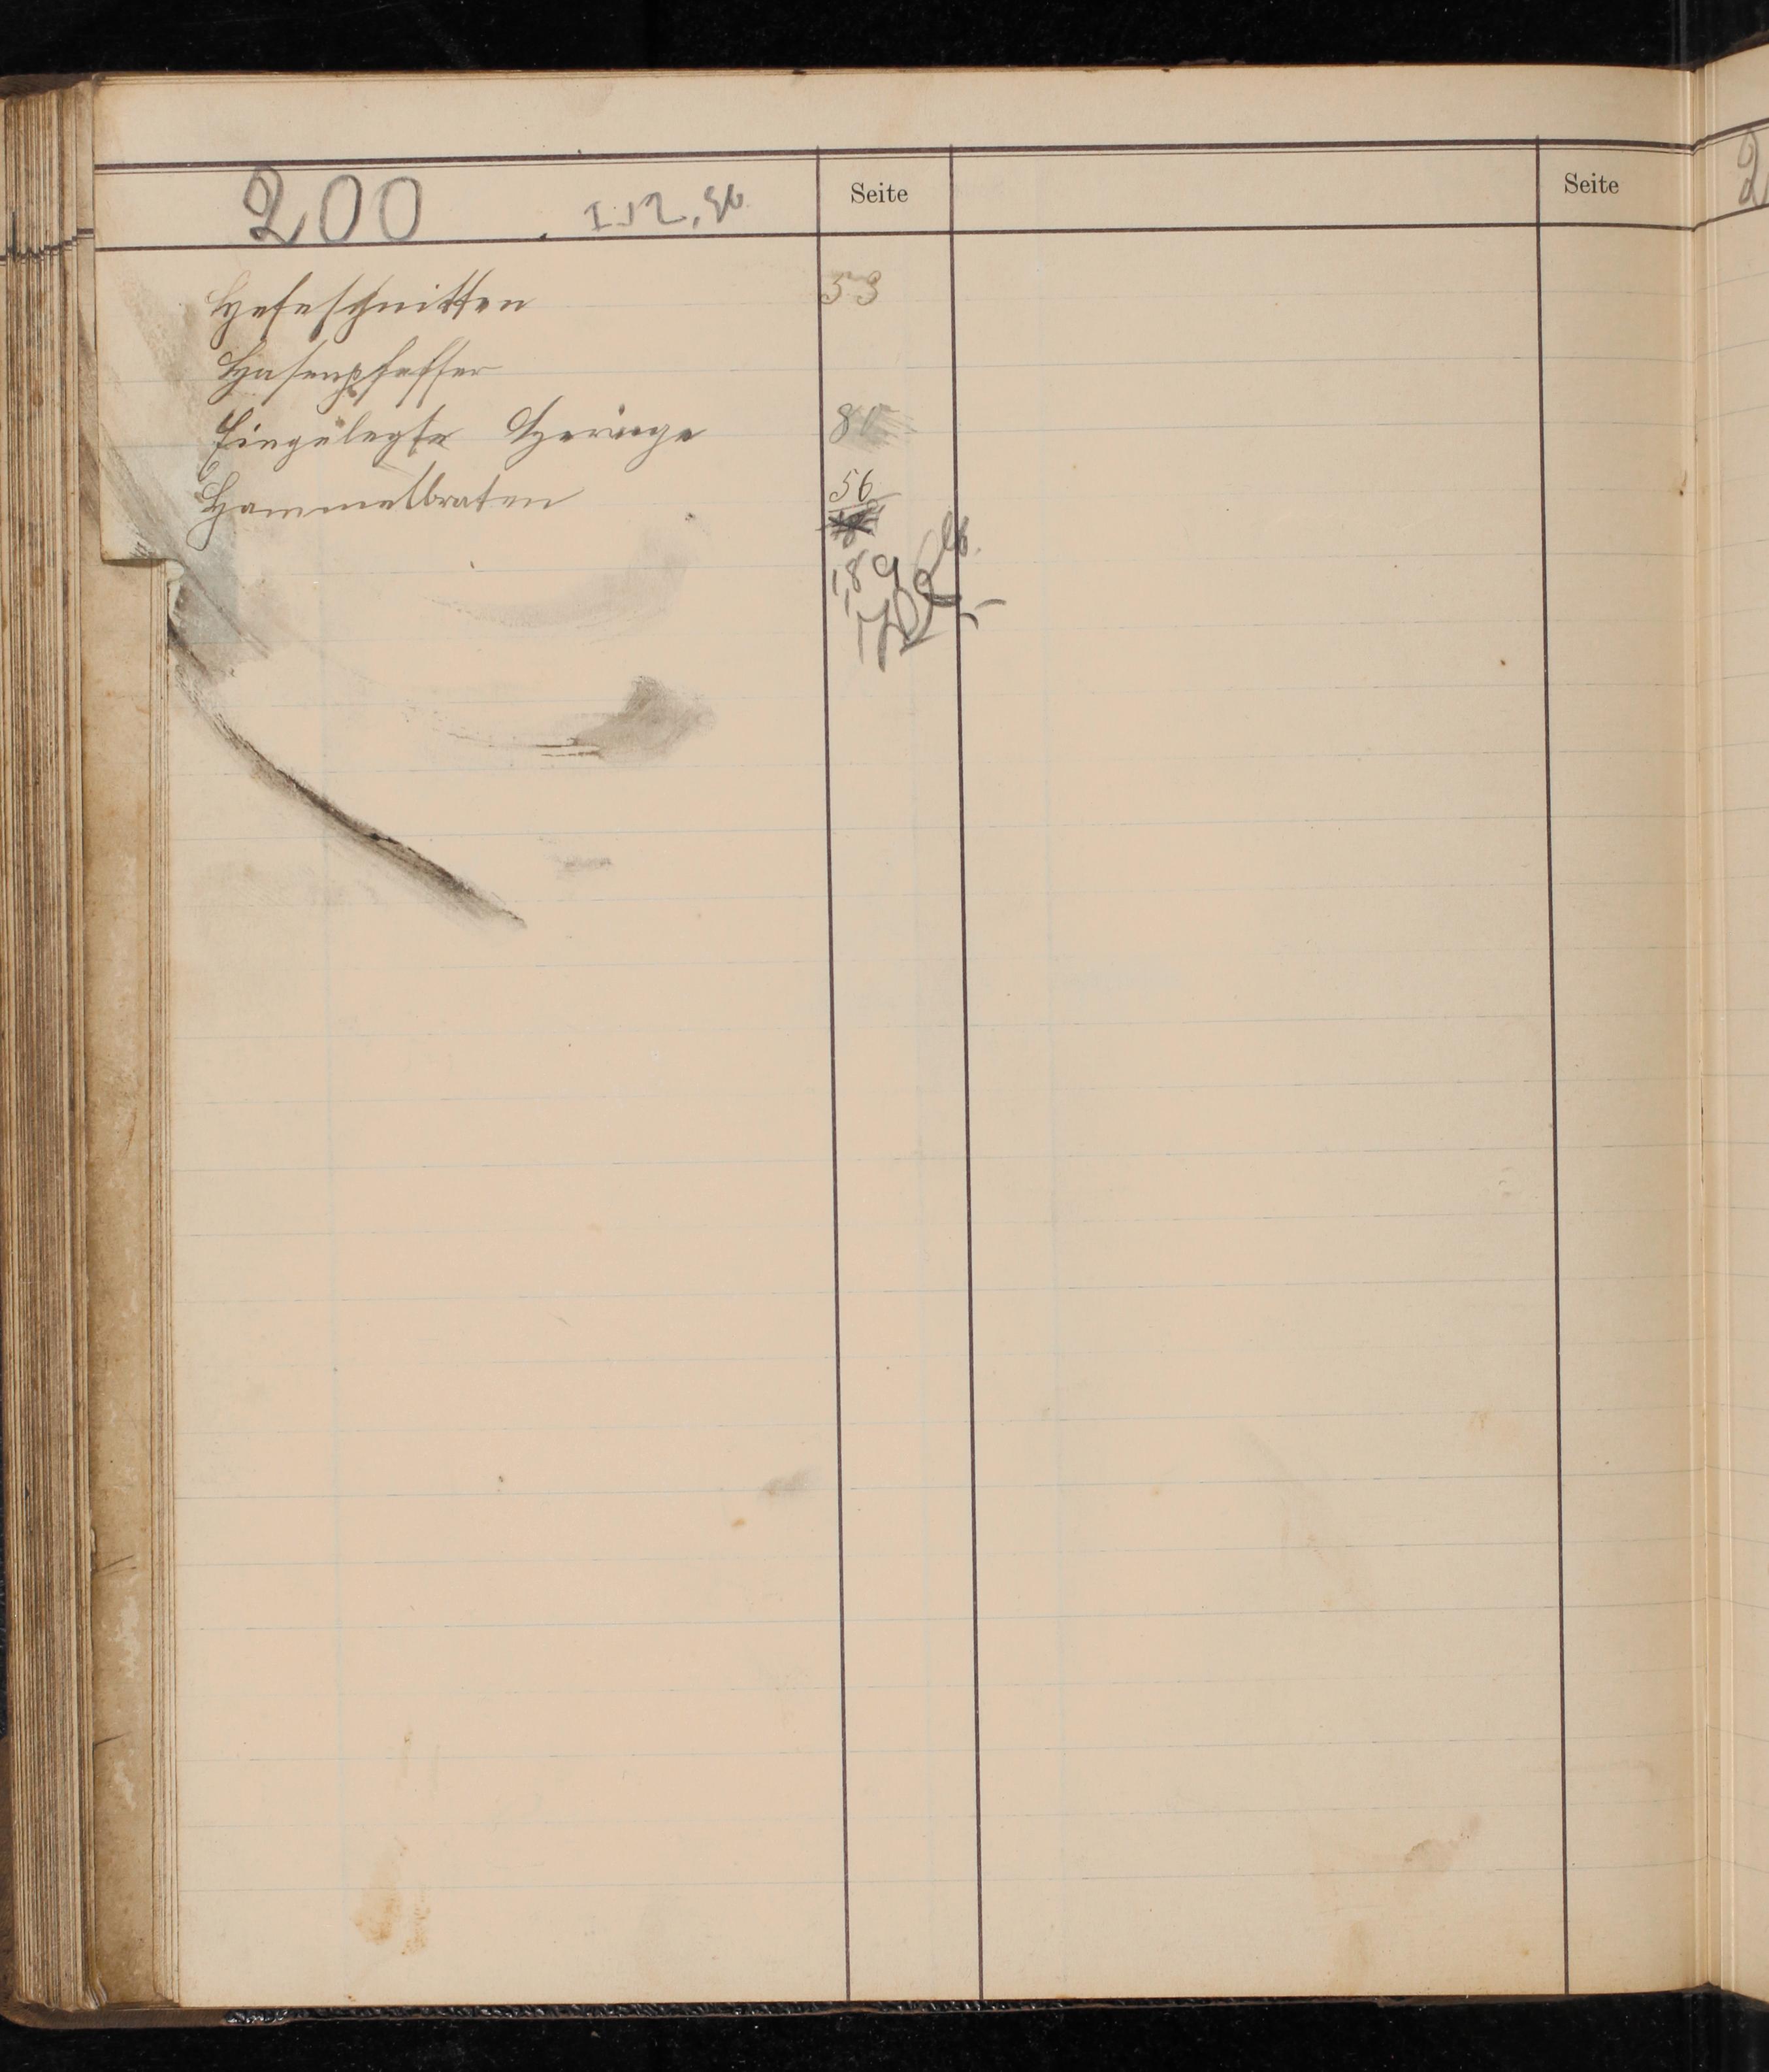 200 Seite Seite
Hefeschnitten 53
Hasenpfeffer
Eingelegte Heringe 81
Hammelbraten 56
189